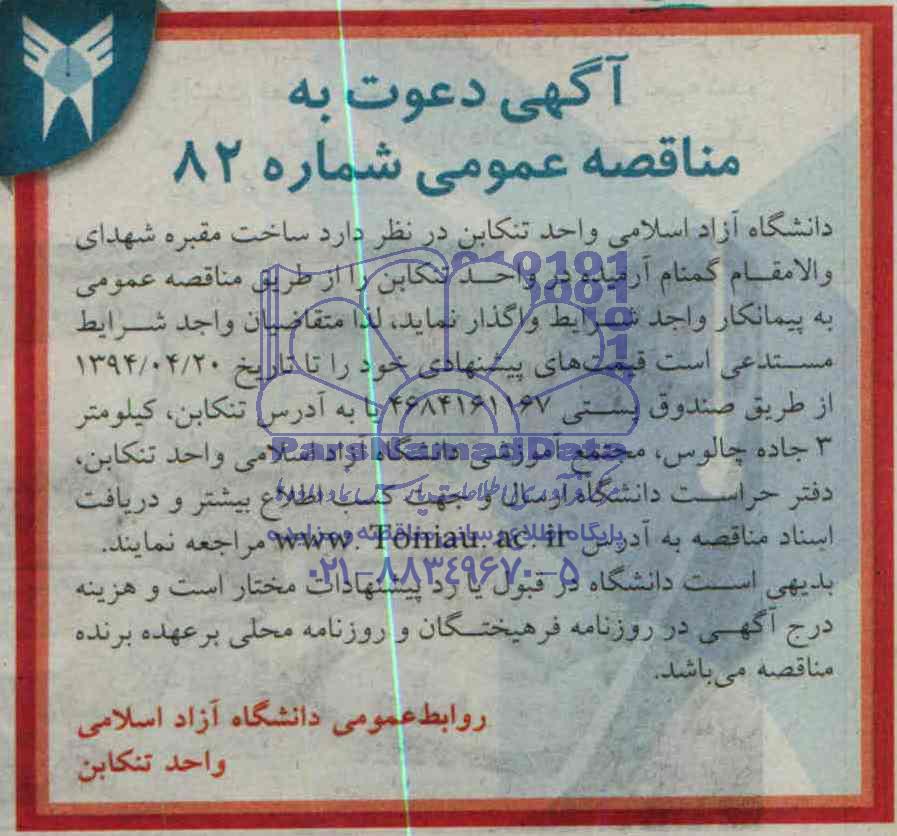 آگهی دعوت به
مناقصه عمومی شماره ۸۲
دانشگاه آزاد اسلامی واحد تنکابن در نظر دارد ساخت مقبره شهدای
والامقام گمنام آرمیده در واحد تنکابن را از طریق مناقصه عمومی
به پیمانکار واجد شرایط واگذار نماید، لذا متقاضیان واجد شرایط
مستدعی است قیمت‌های پیشنهادی خود را تا تاریخ ۱۳۹۴/۰۴/۲۰
از طریق صندوق پستی ۴۶۸۴۱۶۱۱۶۷ یا به آدرس تنکابن، کیلومتر
۳ جاده چالوس، مجتمع آموزشی دانشگاه آزاد اسلامی واحد تنکابن،
دفتر حراست دانشگاه ارسال و جهت کسب اطلاع بیشتر و دریافت
اسناد مناقصه به آدرس www. Toniau. ac. ir مراجعه نمایند.
بدیهی است دانشگاه در قبول یا رد پیشنهادات مختار است و هزینه
درج آگهی در روزنامه فرهیختگان و روزنامه محلی برعهده برنده
مناقصه می‌باشد.
روابط‌عمومی دانشگاه آزاد اسلامی
واحد تنکابن
Parsi Namad Data
پایگاه اطلاع رسانی مناقصه و مزایده
۰۲۱-۸۸۳۴۹۶۷۰-۵